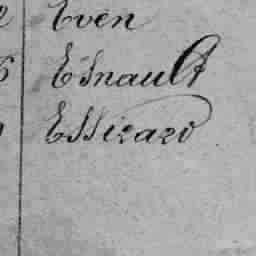 Even
Esnault
Essirard